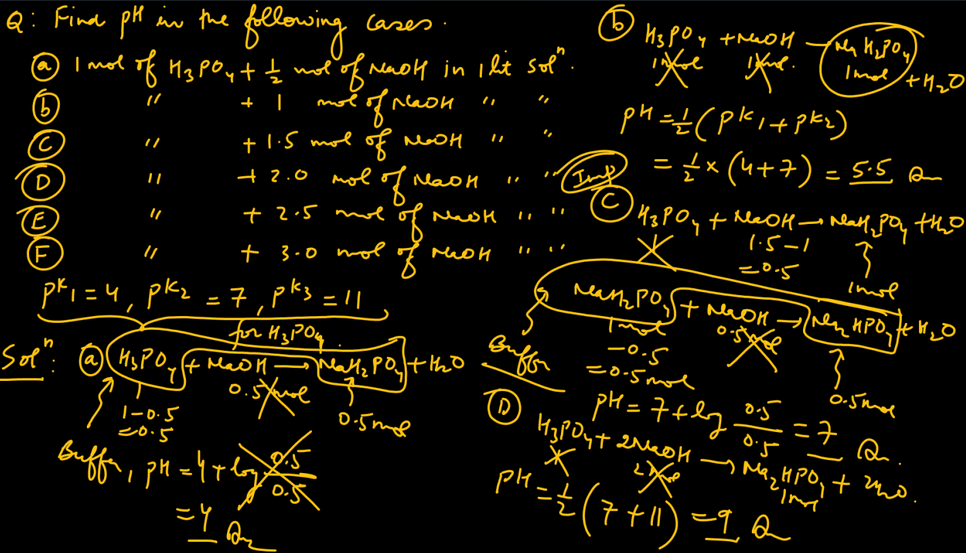 Q: Find pH in the following cases.
(a) 1 mol of H₃PO₄ + 1/2 mol of NaOH in 1 lit solⁿ.
(b) " + 1 mol of NaOH " "
(C) " + 1.5 mol of NaOH " "
(D) " + 2.0 mol of NaOH " "
(E) " + 2.5 mol of NaOH " "
(F) " + 3.0 mol of NaOH " "
pK₁ = 4, pK₂ = 7, pK₃ = 11
for H₃PO₄.
Solⁿ: (a) H₃PO₄ + NaOH → NaH₂PO₄ + H₂O
1-0.5 0.5 mol 0.5 mol
=0.5
Buffer, pH = 4 + log 0.5/0.5
= 4
(b) H₃PO₄ + NaOH → NaH₂PO₄ + H₂O
1 mol 1 mol. 1 mol
pH = 1/2 (pK₁ + pK₂)
= 1/2 × (4+7) = 5.5
Imp (C) H₃PO₄ + NaOH → NaH₂PO₄ + H₂O
1.5-1 1 mol
=0.5
NaH₂PO₄ + NaOH → Na₂HPO₄ + H₂O
1 mol 0.5 mol 0.5 mol
-0.5
=0.5 mol
Buffer
pH = 7 + log 0.5/0.5 = 7
(D) H₃PO₄ + 2NaOH → Na₂HPO₄ + 2H₂O.
2 mol 1 mol
pH = 1/2 (7 + 11) = 9